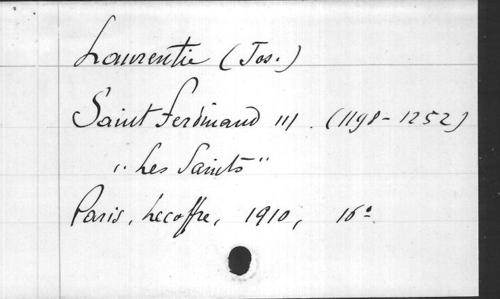 Laurentie (Jos.)
Saint Ferdinand III. (1198-1252)
"Les Saints"
Paris, Lecoffre, 1910, 16º